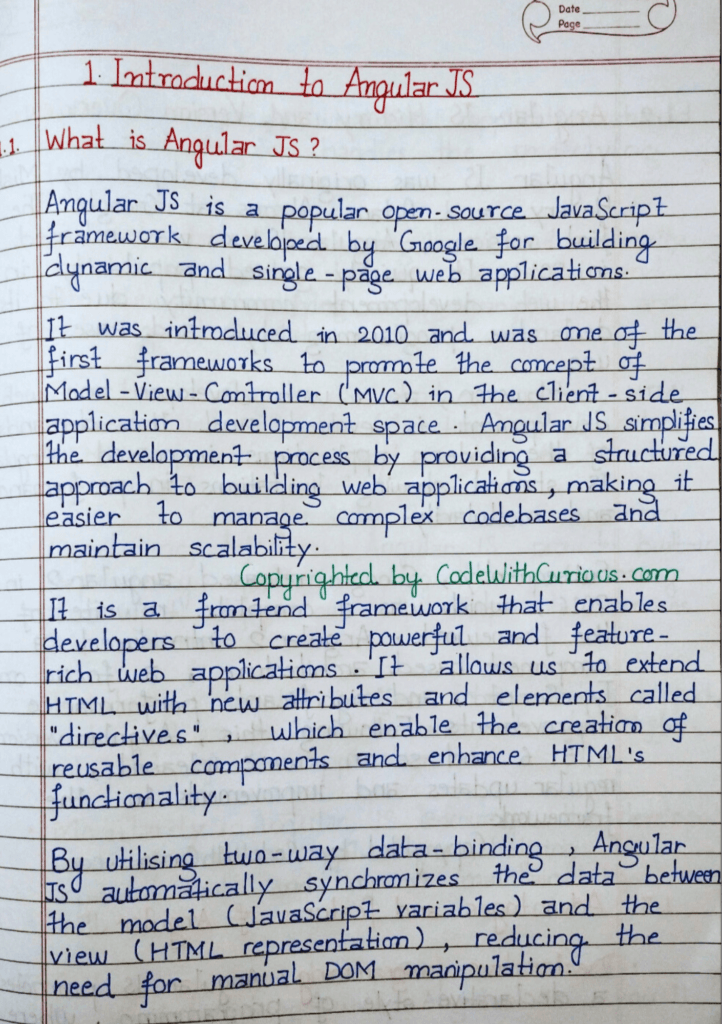 Date
Page
1. Introduction to Angular JS
.1. What is Angular JS ?
Angular JS is a popular open-source JavaScript
framework developed by Google for building
dynamic and single-page web applications.
It was introduced in 2010 and was one of the
first frameworks to promote the concept of
Model-View-Controller (MVC) in the client-side
application development space. Angular JS simplifies
the development process by providing a structured
approach to building web applications, making it
easier to manage complex codebases and
maintain scalability.
Copyrighted by CodeWithCurious.com
It is a frontend framework that enables
developers to create powerful and feature-
rich web applications. It allows us to extend
HTML with new attributes and elements called
"directives", which enable the creation of
reusable components and enhance HTML's
functionality.
By utilising two-way data-binding, Angular
JS automatically synchronizes the data between
the model (JavaScript variables) and the
view (HTML representation), reducing the
need for manual DOM manipulation.